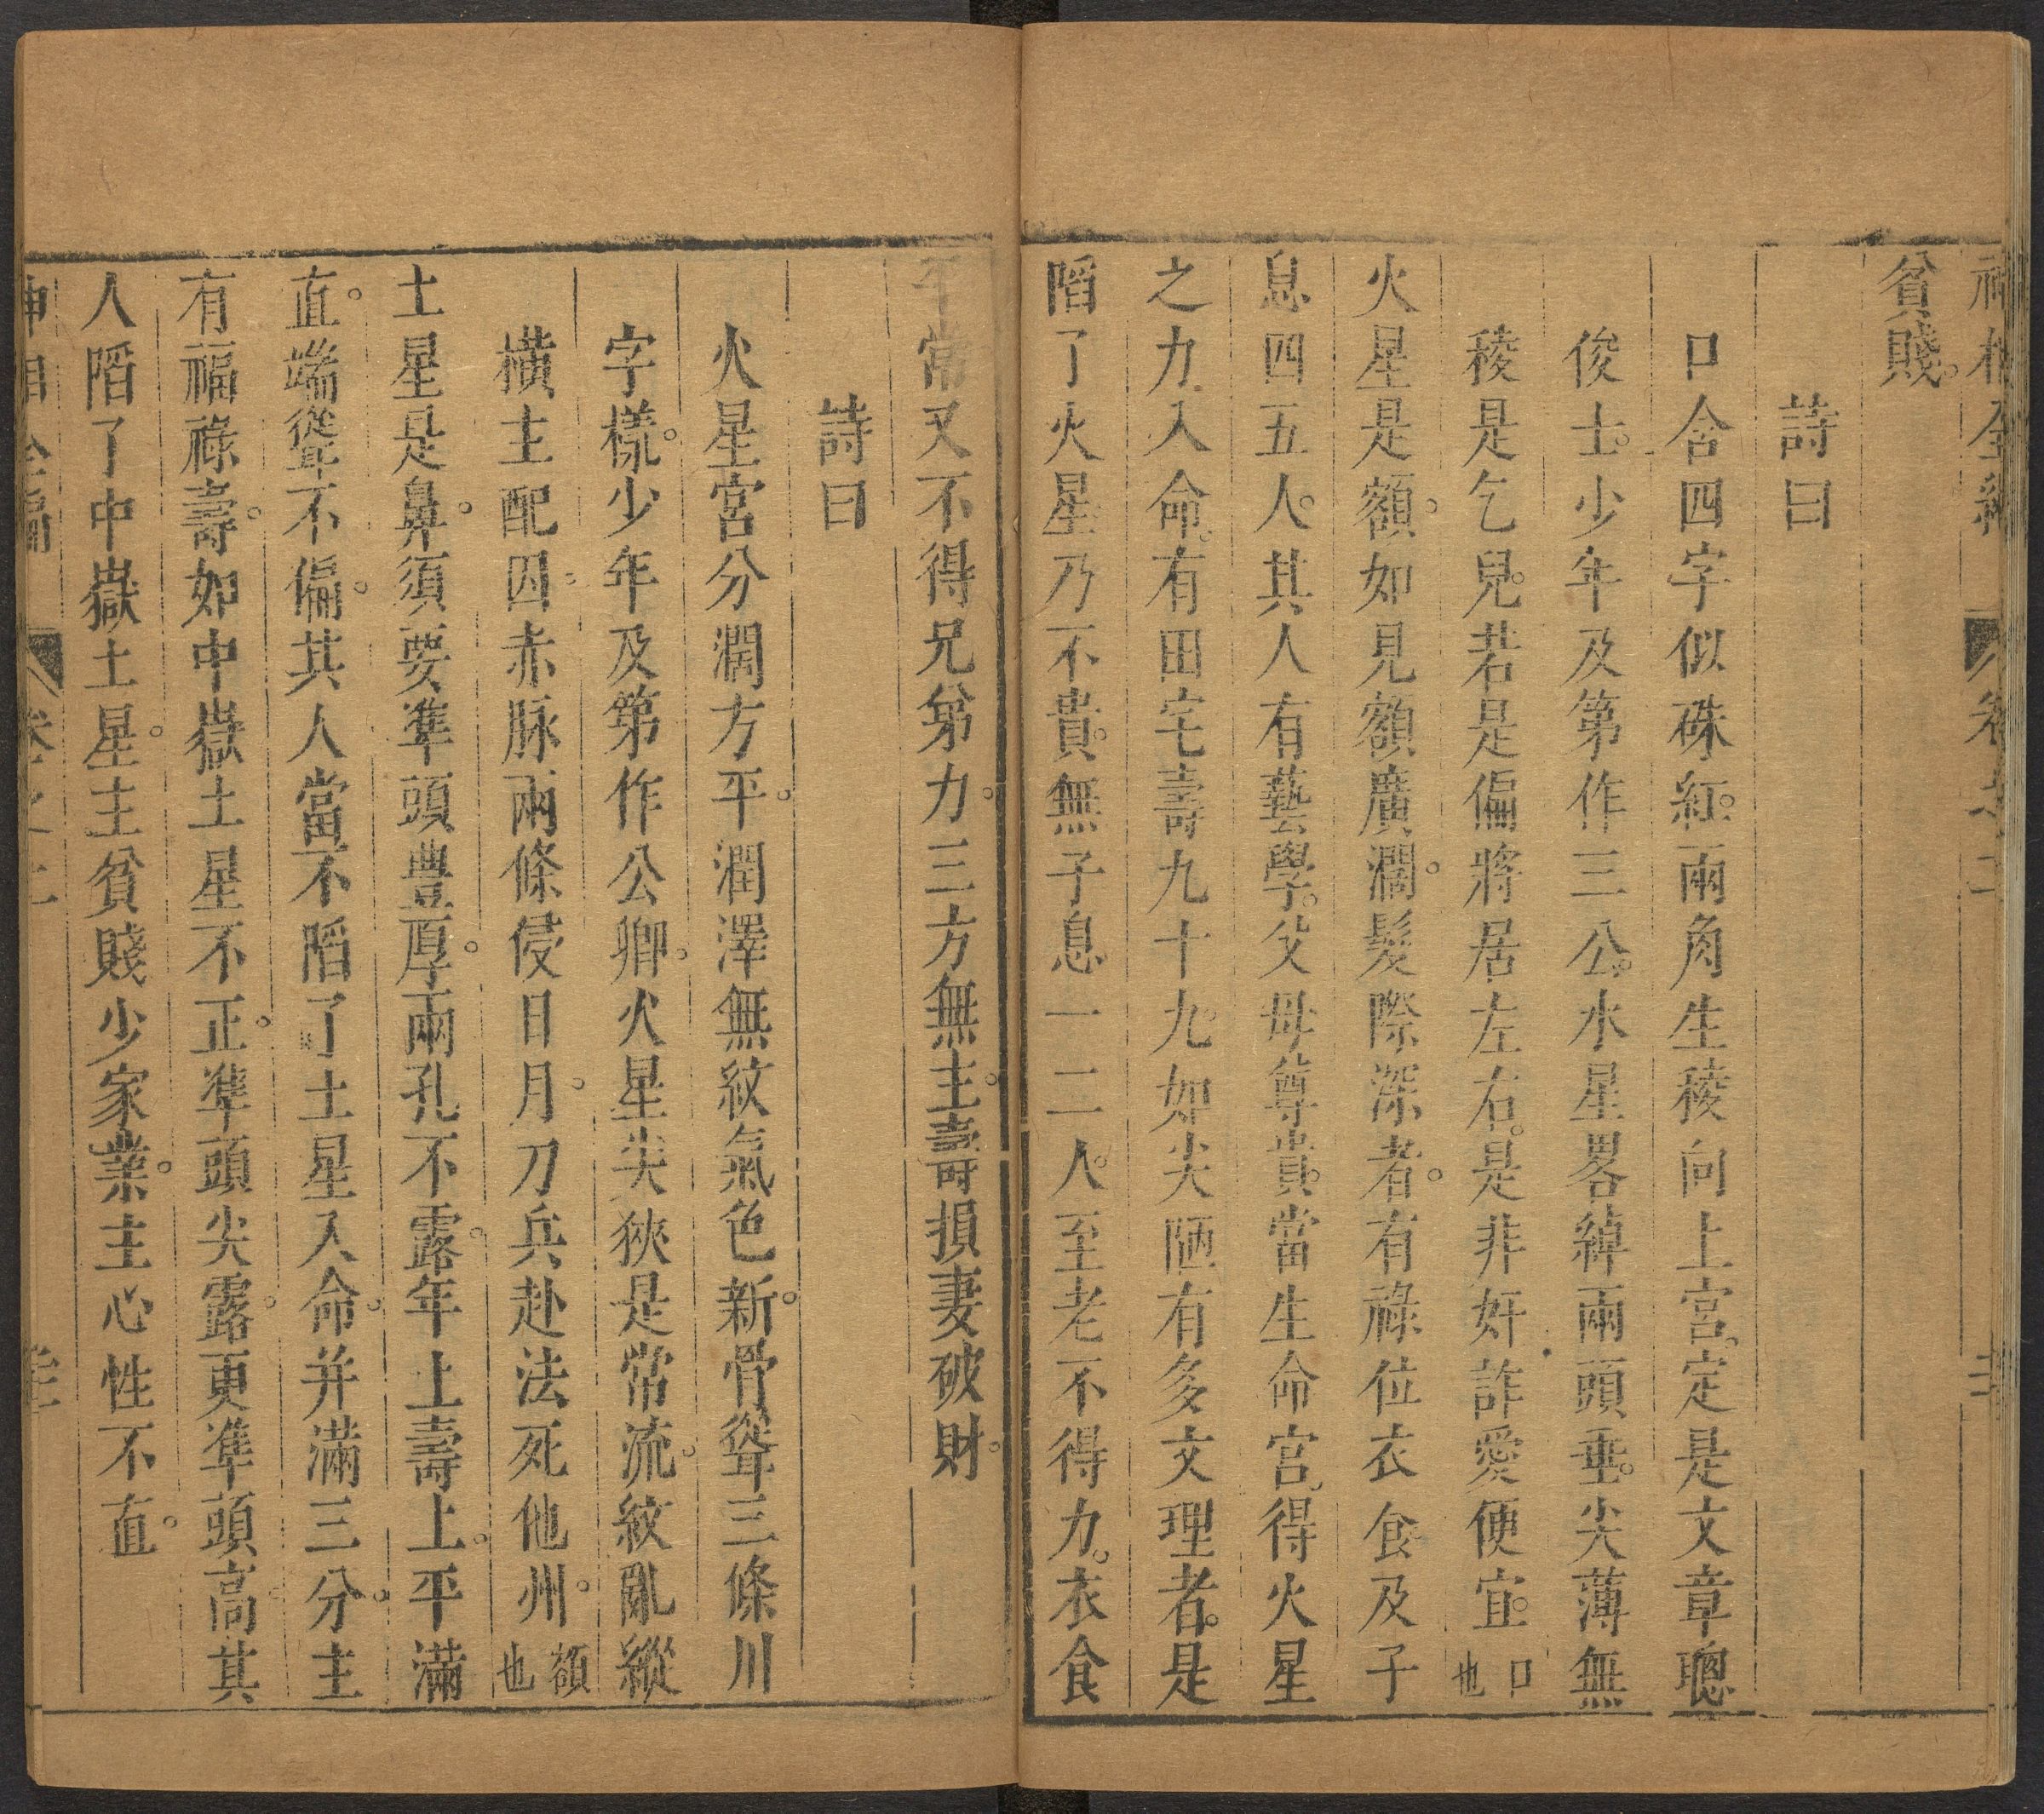 神相全編 卷之二
貧賤。
詩曰
口含四字似硃紅。兩角生稜向上宮。定是文章聰
俊士。少年及第作三公。水星畧綽兩頭垂。尖薄無
稜是乞兒。若是偏將居左右。是非奸詐愛便宜。口也
火星是額。如見額廣濶。髮際深者。有祿位衣食及子
息四五人。其人有藝學。父母尊貴。當生命宮。得火星
之力。入命。有田宅壽九十九。如尖陋有多文理者。是
陷了火星乃不貴。無子息一二人。至老不得力。衣食
平常又不得兄弟力。三方無主。壽損妻破財。
詩曰
火星宮分濶方平。潤澤無紋氣色新。骨聳三條川
字樣。少年及第作公卿。火星尖狹是常流。紋亂縱
橫主配囚。赤脉兩條侵日月。刀兵赴法死他州。額也
土星是鼻。須要準頭豊厚。兩孔不露。年上壽上。平滿
直。端聳不偏。其人當不陷了土星入命。并滿三分。主
有福祿壽。如中嶽土星不正。準頭尖露。更準頭高。其
人陷了中嶽土星。主貧賤少家業。主心性不直。
神相全編 卷之二